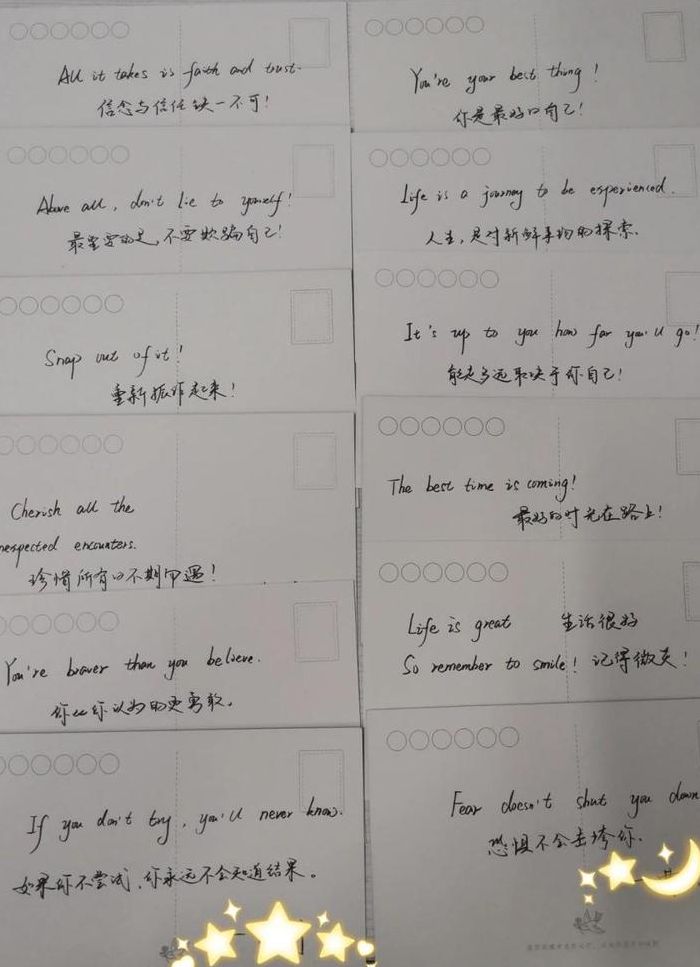 All it takes is faith and trust.
信念与信任缺一不可!
Above all, don't lie to yourself!
最重要的是,不要欺骗自己!
Snap out of it!
重新振作起来!
Cherish all the
nexpected encounters.
珍惜所有的不期而遇!
You're braver than you believe.
你比你认为的更勇敢。
If you don't try, you'll never know.
如果你不尝试,你永远不会知道结果。
You're your best thing!
你是最好的自己!
Life is a journey to be experienced.
人生,是对新鲜事物的探索.
It's up to you how far you'll go!
能走多远取决于你自己!
The best time is coming!
最好的时光在路上!
Life is great 生活很好
So remember to smile! 记得微笑!
Fear doesn't shut you down
恐惧不会击垮你.